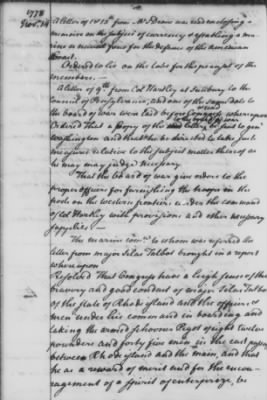 1778
Nov. 14
A letter of 12th from Mr Deane was read enclosing a
memoire on the subject of currency & establishing a ma-
rine or naval force for the defence of the American
Coast.
Ordered to lie on the table for the perusal of the
members.
A letter of 9th from Col Hartley at Sunbury to the
Council of Pensylvania, and one of the same date to
the board of war were laid before Congress whereupon
Ordered That a copy of the letter be sent to genl
Washington and that he be directed to take such
measures relative to the subject matter thereof as
he may judge necessary
That the board of war give orders to the
proper officers for furnishing the troops in the
posts on the western frontiers under the command
of Col Hartley with provisions and other necessary
supplies
The marine comee to whom was referred the
letter from major Silas Talbot brought in a report
whereupon
Resolved That Congress have a high sense of the
bravery and good conduct of major Silas Talbot
of the state of Rhode island and the officers &
men under his command in boarding and
taking the armed schooner Pigot of eight twelve
pounders and forty five men in the east passage
between Rhode island and the main, and that
he as a reward of merit and for the encou-
ragement of a spirit of enterprize, be